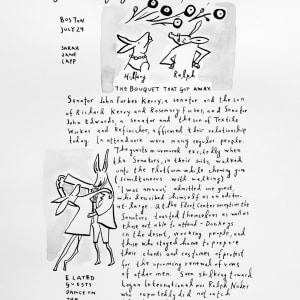 BOSTON
JULY 29
SARAH
JANE
LAPP
Hillary
Ralph
THE BOUQUET THAT GOT AWAY
Senator John Forbes Kerry, a senator and the son
of Richard Kerry and Rosemary Forbes, and Senator
John Edwards, a senator and the son of Textile
Worker and Refinisher, affirmed their relationship
today. In attendance were many regular people.
The guests murmured excitedly when
the Senators, in their suits, walked
onto the platform while chewing gum
(simultaneous with walking).
"I was anxious" admitted one guest,
who described himself as an editor-
at-large. At the Fleet Center reception the
Senators toasted themselves as well as
those not able to attend - Donkeys
in the desert, working people, and
those who stayed home to prepare
their chants and costumes of protest
for the upcoming renewal of vows
of other men. Seen skulking toward
Logan International was Ralph Nader
who reportedly did not catch
ELATED
GUESTS
DANCE ON
THE